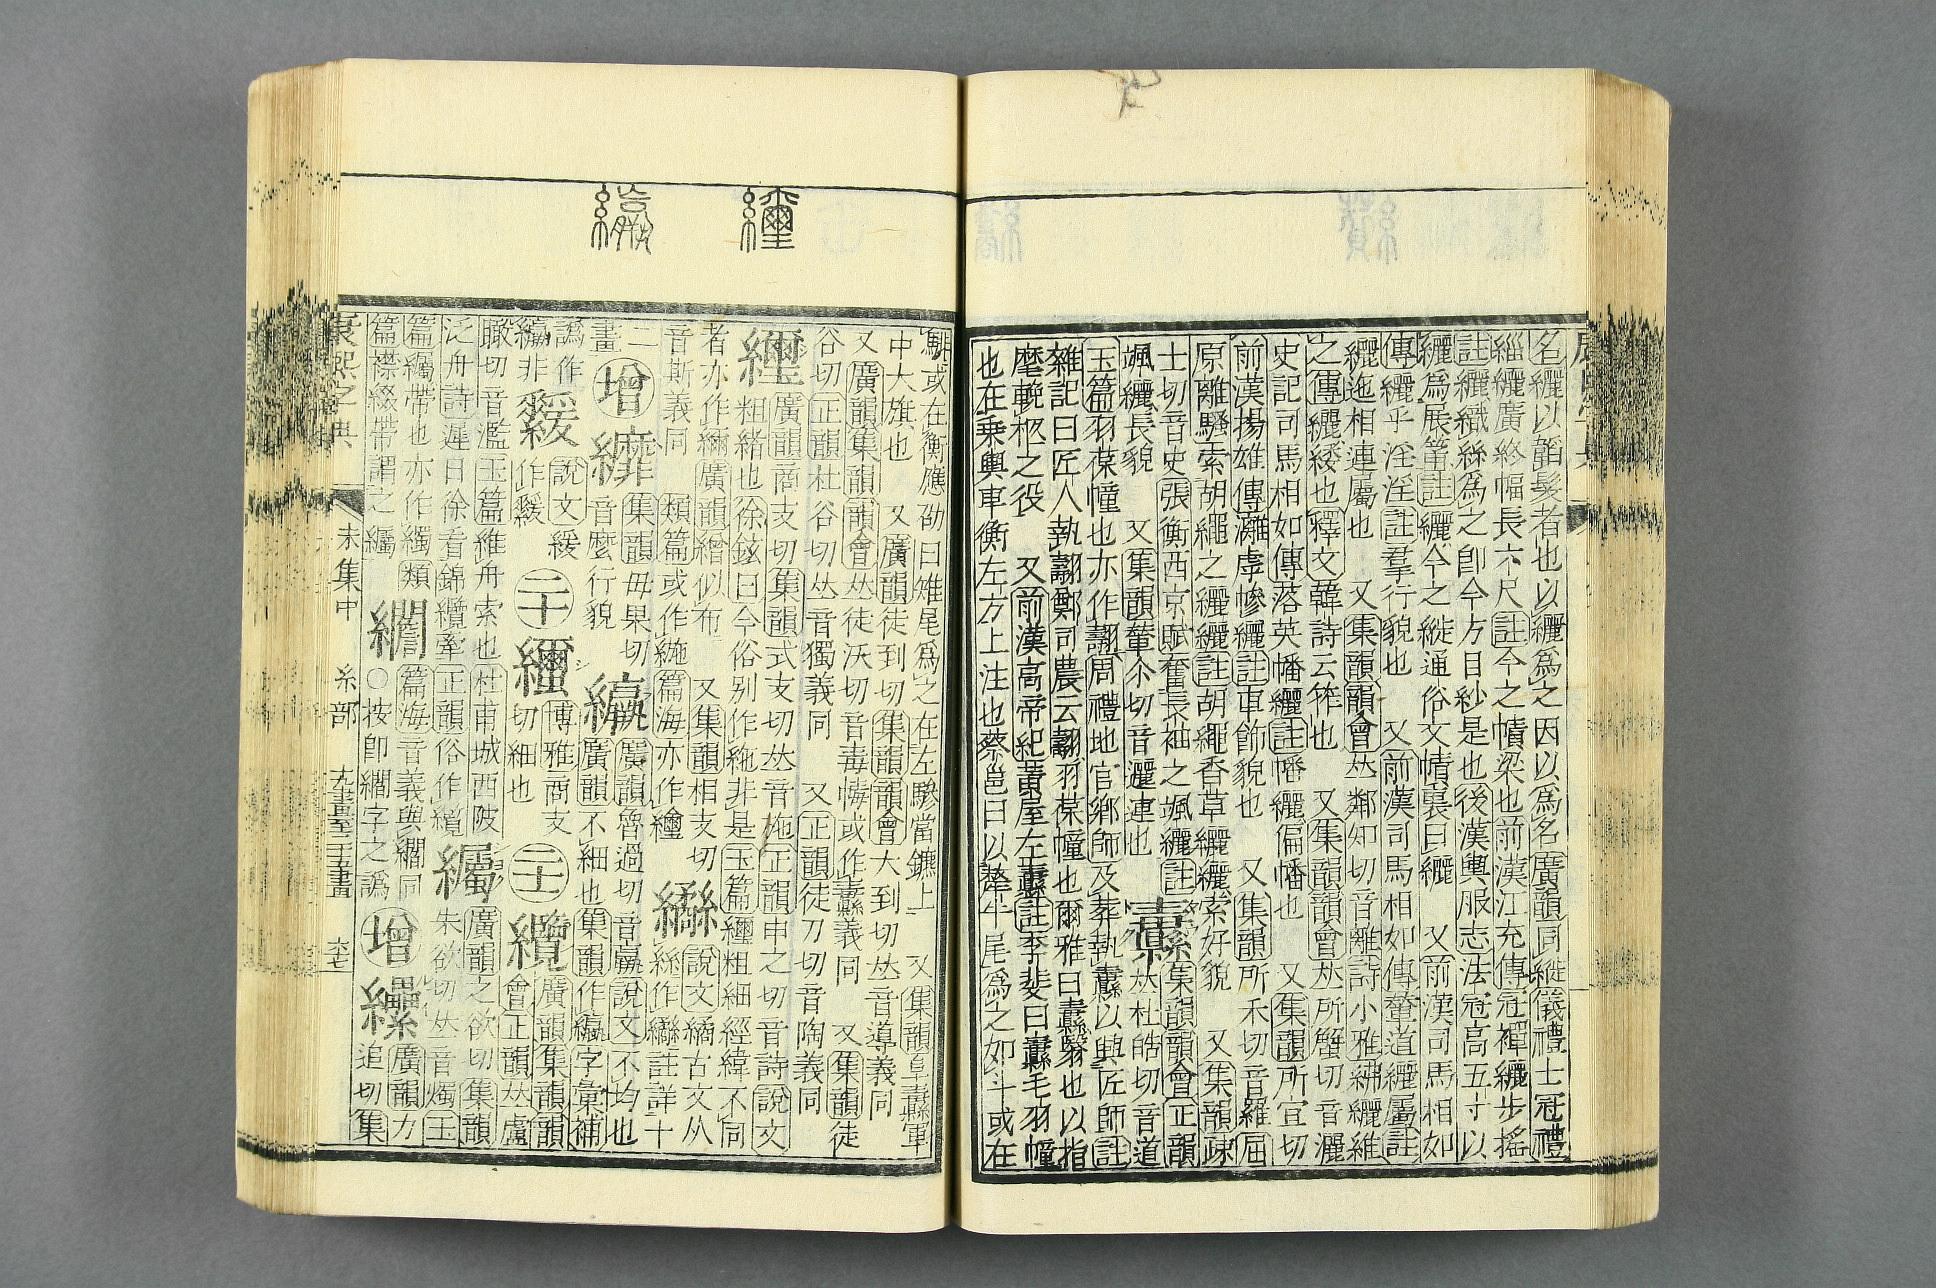 名纚以韜髮者也以纚爲之因以爲名廣韻同縰儀禮士冠禮
緇纚廣終幅長六尺註今之幘梁也前漢江充傳冠襌纚步搖
註纚織絲爲之卽今方目紗是也後漢輿服志法冠高五寸以
纚爲展筩註纚今之縰通俗文幘裏曰纚 又前漢司馬相如
傳纚乎淫淫註羣行貌也 又前漢司馬相如傳輦道纚屬註
纚迤相連屬也 又集韻韻會𠀤鄰知切音離詩小雅紼纚維
之傳纚緌也釋文韓詩云筰也 又集韻韻會𠀤所蟹切音灑
史記司馬相如傳落英幡纚註幡纚偏幡也 又集韻所宜切
前漢揚雄傳灕虖幓纚註車飾貌也 又集韻所禾切音羅屈
原離騷索胡繩之纚纚註胡繩香草纚纚索好貌 又集韻疎
士切音史張衡西京賦奮長袖之颯纚註
颯纚長貌 又集韻輦尒切音邐連也
纛
集韻韻會正韻
𠀤杜皓切音道
玉篇羽葆幢也亦作翿周禮地官鄉師及葬執纛以與匠師註
雜記曰匠人執翿鄭司農云翿羽葆幢也爾雅曰纛翳也以指
麾輓柩之役 又前漢高帝紀黃屋左纛註李斐曰纛毛羽幢
也在乗輿車衡左方上注也蔡邕曰以犛牛尾爲之如斗或在
騑或在衡應劭曰雉尾爲之在左驂當鑣上 又集韻皁纛軍
中大旗也 又廣韻徒到切集韻韻會大到切𠀤音導義同
又廣韻集韻韻會𠀤徒沃切音毒㒔或作纛義同 又集韻徒
谷切正韻杜谷切𠀤音獨義同 又正韻徒刀切音陶義同
纆
廣韻商支切集韻式支切𠀤音㐌正韻申之切音詩說文
粗緒也徐鉉曰今俗别作絁非是玉篇纚粗細經緯不同
者亦作䌤廣韻繒似布 又集韻相支切
音斯義同
類篇或作絁篇海亦作繵
䜌
說文䜌古文从
絲作䜌註詳十
二
畫
增
䌕
集韻毋果切
音麼行貌
纗
廣韻力追切
廣韻不細也
集韻作纗字彙補
譌作
編非
緩
說文緩
作緩
二十
䌤
博雅商支
切細也
二十一
纜
廣韻集韻韻
會正韻𠀤盧
瞰切音濫玉篇維舟索也杜甫城西陂
泛舟詩遲日徐看錦纜牽正韻俗作䌫
纗
廣韻之欲切集韻
朱欲切𠀤音燭玉
篇纗帶也亦作䌵類
篇襟綴帶謂之纗
繝
篇海音義與繝同
○按卽繝字之譌
增
纝
廣韻力
追切集
康熙字典
未集中 糸部